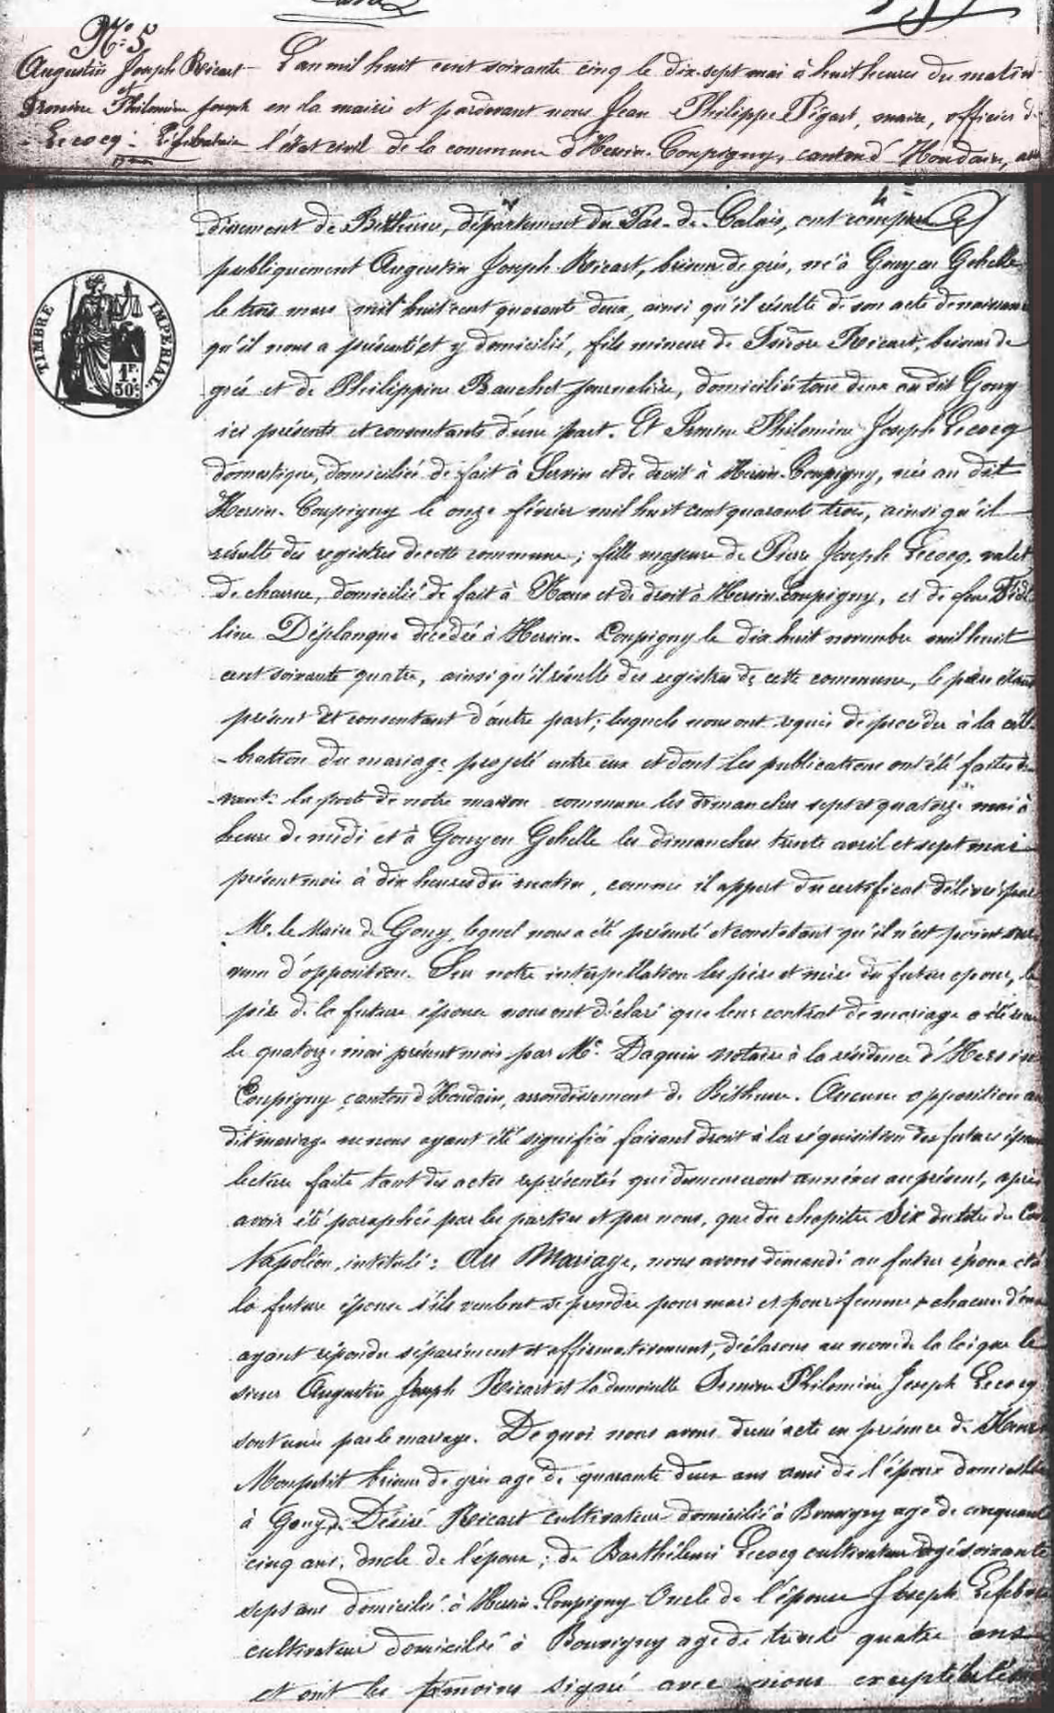 N° 5
Augustin Joseph Ricart L'an mil huit cent soixante cinq le dix-sept mai à huit heures du matin
Philomène Joseph en la mairie et pardevant nous Jean Philippe Pégart, maire, officier de
Lecocq l'état civil de la commune d'Hersin-Coupigny, canton d'Houdain,
dissement de Béthune, département du Pas-de-Calais, ont comparu
publiquement Augustin Joseph Ricart, briseur de grès, né à Gouy en Gohelle
le trois mars mil huit cent quarante deux, ainsi qu'il résulte de son acte de naissance
qu'il nous a présenté et y domicilié, fils mineur de Isidore Ricart, briseur de
grès et de Philippine Bauchet journalière, domiciliés tous deux au dit Gouy
ici présents et consentants d'une part. Et Philomène Joseph Lecocq
domestique, domiciliée de fait à Servin et de droit à Hersin-Coupigny, née au dit
Hersin-Coupigny le onze février mil huit cent quarante trois, ainsi qu'il
résulte des registres de cette commune; fille majeure de Pierre Joseph Lecocq, valet
de charrue, domicilié de fait à Nœux et de droit à Hersin-Coupigny, et de feue
line Déplanque décédée à Hersin-Coupigny le dix huit novembre mil huit
cent soixante quatre, ainsi qu'il résulte des registres de cette commune, le père étant
présent et consentant d'autre part; lesquels nous ont requis de procéder à la célé-
-bration du mariage projeté entre eux et dont les publications ont été faites de-
-vant la porte de notre maison commune les dimanches sept et quatorze mai à
heure de midi et à Gouy en Gohelle les dimanches trente avril et sept mai
présent mois à dix heures du matin, comme il appert du certificat délivré par
Mr. le Maire de Gouy, lequel nous a été présenté et constatant qu'il n'est point sur-
venu d'opposition. Sur notre interpellation les père et mère du futur époux, le
père de la future épouse nous ont déclaré que leur contrat de mariage a été
le quatorze mai présent mois par Me Daquin notaire à la résidence d'Hersin
Coupigny canton d'Houdain, arrondissement de Béthune. Aucune opposition au
dit mariage ne nous ayant été signifiée faisant droit à la réquisition des futurs époux
lecture faite tant des actes représentés qui demeureront annexés au présent, après
avoir été paraphés par les parties et par nous, que du chapitre Six du titre du Code
Napoléon, intitulé: du Mariage, nous avons demandé au futur époux et à
la future épouse s'ils veulent se prendre pour mari et pour femme chacun d'eux
ayant répondu séparément et affirmativement, déclarons au nom de la loi que le
sieur Augustin Joseph Ricart et la demoiselle Philomène Joseph Lecocq
sont unis par le mariage. De quoi nous avons dressé acte en présence de
Monpetit briseur de grès age de quarante deux ans ami de l'époux domicilié
à Gouy, de Désiré Ricart cultivateur domicilié à Bouvigny age de cinquante
cinq ans, oncle de l'époux; de Barthélemi Lecocq cultivateur agé soixante
sept ans domicilié à Hersin-Coupigny Oncle de l'épouse Joseph Lefebvre
cultivateur domicilié à Bouvigny age de trente quatre ans
et ont les témoins signé avec nous excepté
TIMBRE IMPÉRIAL
1F.
50C.